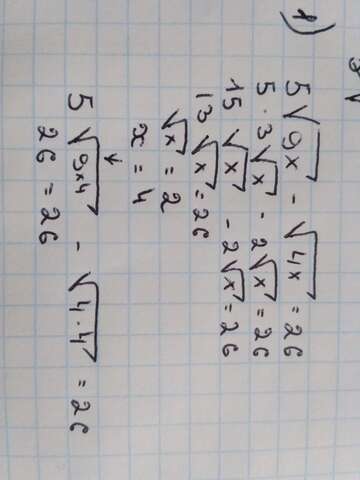 1)
5√9x - √4x = 26
5·3√x - 2√x = 26
15√x - 2√x = 26
13√x = 26
√x = 2
x = 4
↓
5√9x4 - √4·4 = 26
26 = 26